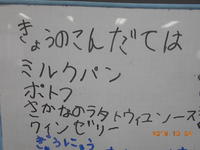 きょうのこんだては
ミルクパン
ポトフ
さかなのラタトゥイユソース
ワインゼリー
ぎゅうにゅう